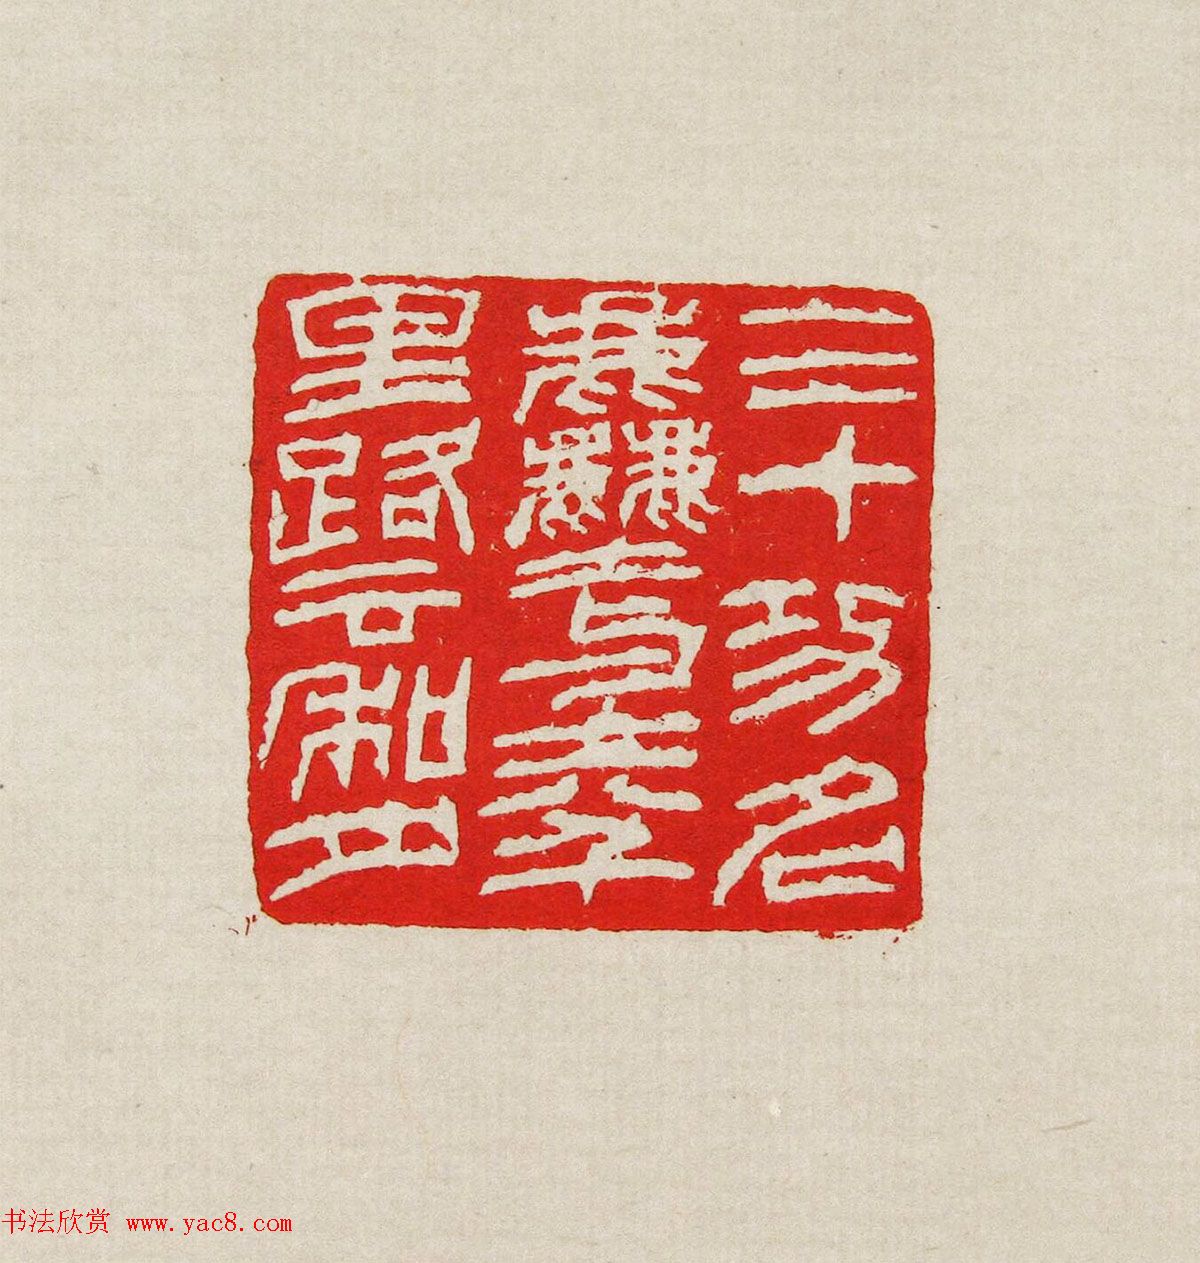 三十功名
尘土八千
里路云和月
书法欣赏 www.yac8.com